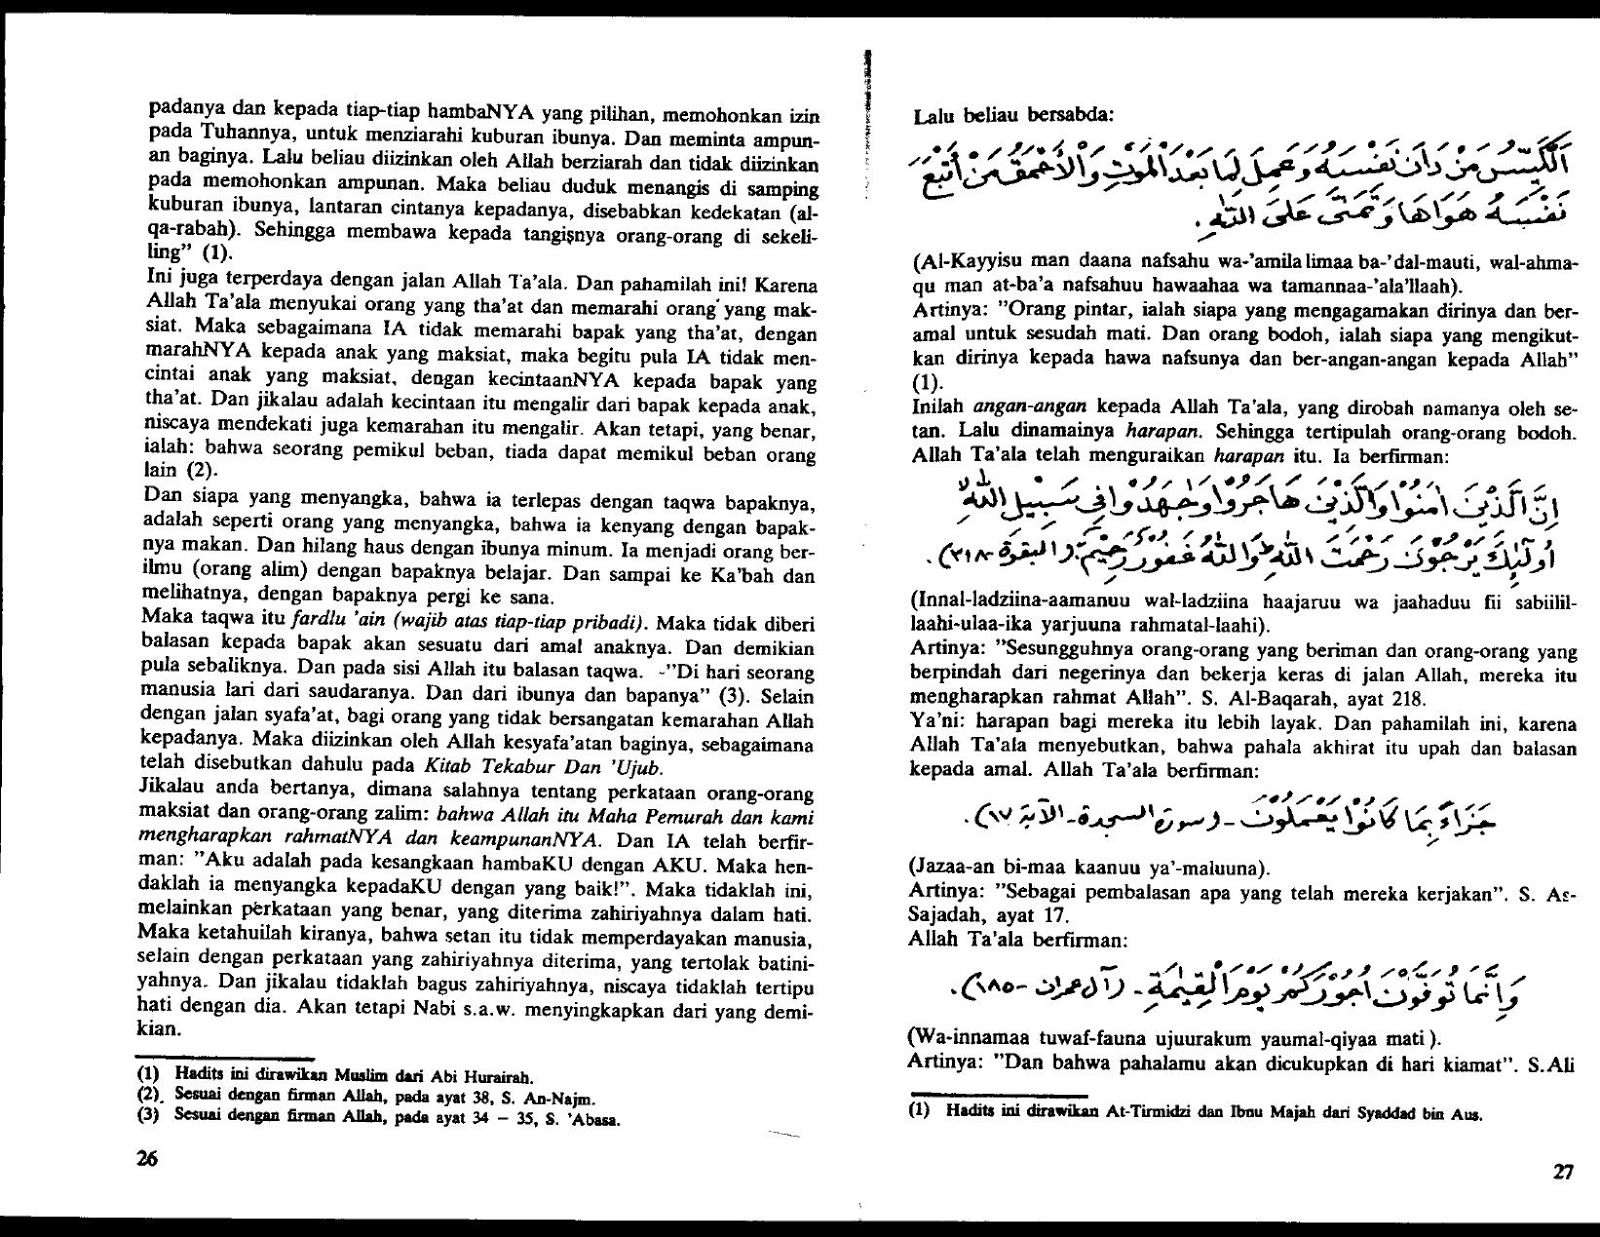 padanya dan kepada tiap-tiap hambaNYA yang pilihan, memohonkan izin
pada Tuhannya, untuk menziarahi kuburan ibunya. Dan meminta ampun-
an baginya. Lalu beliau diizinkan oleh Allah berziarah dan tidak diizinkan
pada memohonkan ampunan. Maka beliau duduk menangis di samping
kuburan ibunya, lantaran cintanya kepadanya, disebabkan kedekatan (al-
qa-rabah). Sehingga membawa kepada tangisnya orang-orang di sekeli-
ling" (1).
Ini juga terperdaya dengan jalan Allah Ta'ala. Dan pahamilah ini! Karena
Allah Ta'ala menyukai orang yang tha'at dan memarahi orang yang mak-
siat. Maka sebagaimana IA tidak memarahi bapak yang tha'at, dengan
marahNYA kepada anak yang maksiat, maka begitu pula IA tidak men-
cintai anak yang maksiat, dengan kecintaanNYA kepada bapak yang
tha'at. Dan jikalau adalah kecintaan itu mengalir dari bapak kepada anak,
niscaya mendekati juga kemarahan itu mengalir. Akan tetapi, yang benar,
ialah: bahwa seorang pemikul beban, tiada dapat memikul beban orang
lain (2).
Dan siapa yang menyangka, bahwa ia terlepas dengan taqwa bapaknya,
adalah seperti orang yang menyangka, bahwa ia kenyang dengan bapak-
nya makan. Dan hilang haus dengan ibunya minum. Ia menjadi orang ber-
ilmu (orang alim) dengan bapaknya belajar. Dan sampai ke Ka'bah dan
melihatnya, dengan bapaknya pergi ke sana.
Maka taqwa itu fardlu 'ain (wajib atas tiap-tiap pribadi). Maka tidak diberi
balasan kepada bapak akan sesuatu dari amal anaknya. Dan demikian
pula sebaliknya. Dan pada sisi Allah itu balasan taqwa. -"Di hari seorang
manusia lari dari saudaranya. Dan dari ibunya dan bapanya" (3). Selain
dengan jalan syafa'at, bagi orang yang tidak bersangatan kemarahan Allah
kepadanya. Maka diizinkan oleh Allah kesyafa'atan baginya, sebagaimana
telah disebutkan dahulu pada Kitab Tekabur Dan 'Ujub.
Jikalau anda bertanya, dimana salahnya tentang perkataan orang-orang
maksiat dan orang-orang zalim: bahwa Allah itu Maha Pemurah dan kami
mengharapkan rahmatNYA dan keampunanNYA. Dan IA telah berfir-
man: "Aku adalah pada kesangkaan hambaKU dengan AKU. Maka hen-
daklah ia menyangka kepadaKU dengan yang baik!". Maka tidaklah ini,
melainkan perkataan yang benar, yang diterima zahiriyahnya dalam hati.
Maka ketahuilah kiranya, bahwa setan itu tidak memperdayakan manusia,
selain dengan perkataan yang zahiriyahnya diterima, yang tertolak batini-
yahnya. Dan jikalau tidaklah bagus zahiriyahnya, niscaya tidaklah tertipu
hati dengan dia. Akan tetapi Nabi s.a.w. menyingkapkan dari yang demi-
kian.
(1) Hadits ini dirawikan Muslim dari Abi Hurairah.
(2). Sesuai dengan firman Allah, pada ayat 38, S. An-Najm.
(3) Sesuai dengan firman Allah, pada ayat 34 – 35, S. 'Abasa.
26
Lalu beliau bersabda:
اَلْكَيِّسُ مَنْ دَانَ نَفْسَهُ وَعَمِلَ لِمَا بَعْدَ الْمَوْتِ وَالْأَحْمَقُ مَنْ أَتْبَعَ
نَفْسَهُ هَوَاهَا وَتَمَنَّى عَلَى اللّٰهِ.
(Al-Kayyisu man daana nafsahu wa-'amila limaa ba-'dal-mauti, wal-ahma-
qu man at-ba'a nafsahuu hawaahaa wa tamannaa-'ala'llaah).
Artinya: "Orang pintar, ialah siapa yang mengagamakan dirinya dan ber-
amal untuk sesudah mati. Dan orang bodoh, ialah siapa yang mengikut-
kan dirinya kepada hawa nafsunya dan ber-angan-angan kepada Allah"
(1).
Inilah angan-angan kepada Allah Ta'ala, yang dirobah namanya oleh se-
tan. Lalu dinamainya harapan. Sehingga tertipulah orang-orang bodoh.
Allah Ta'ala telah menguraikan harapan itu. Ia berfirman:
اِنَّ الَّذِيْنَ اٰمَنُوْا وَالَّذِيْنَ هَاجَرُوْا وَجٰهَدُوْا فِيْ سَبِيْلِ اللّٰهِ لا
اُولٰٓئِكَ يَرْجُوْنَ رَحْمَتَ اللّٰهِ ط وَاللّٰهُ غَفُوْرٌ رَحِيْمٌ (البقرة ٢١٨).
(Innal-ladziina-aamanuu wal-ladziina haajaruu wa jaahaduu fii sabiilil-
laahi-ulaa-ika yarjuuna rahmatal-laahi).
Artinya: "Sesungguhnya orang-orang yang beriman dan orang-orang yang
berpindah dari negerinya dan bekerja keras di jalan Allah, mereka itu
mengharapkan rahmat Allah". S. Al-Baqarah, ayat 218.
Ya'ni: harapan bagi mereka itu lebih layak. Dan pahamilah ini, karena
Allah Ta'ala menyebutkan, bahwa pahala akhirat itu upah dan balasan
kepada amal. Allah Ta'ala berfirman:
جَزَاءً بِمَا كَانُوْا يَعْمَلُوْنَ - (سورة السجدة - الآية ١٧).
(Jazaa-an bi-maa kaanuu ya'-maluuna).
Artinya: "Sebagai pembalasan apa yang telah mereka kerjakan". S. As-
Sajadah, ayat 17.
Allah Ta'ala berfirman:
وَاِنَّمَا تُوَفَّوْنَ اُجُوْرَكُمْ يَوْمَ الْقِيٰمَةِ - (آل عمران - ١٨٥).
(Wa-innamaa tuwaf-fauna ujuurakum yaumal-qiyaa mati).
Artinya: "Dan bahwa pahalamu akan dicukupkan di hari kiamat". S.Ali
(1) Hadits ini dirawikan At-Tirmidzi dan Ibnu Majah dari Syaddad bin Aus.
27